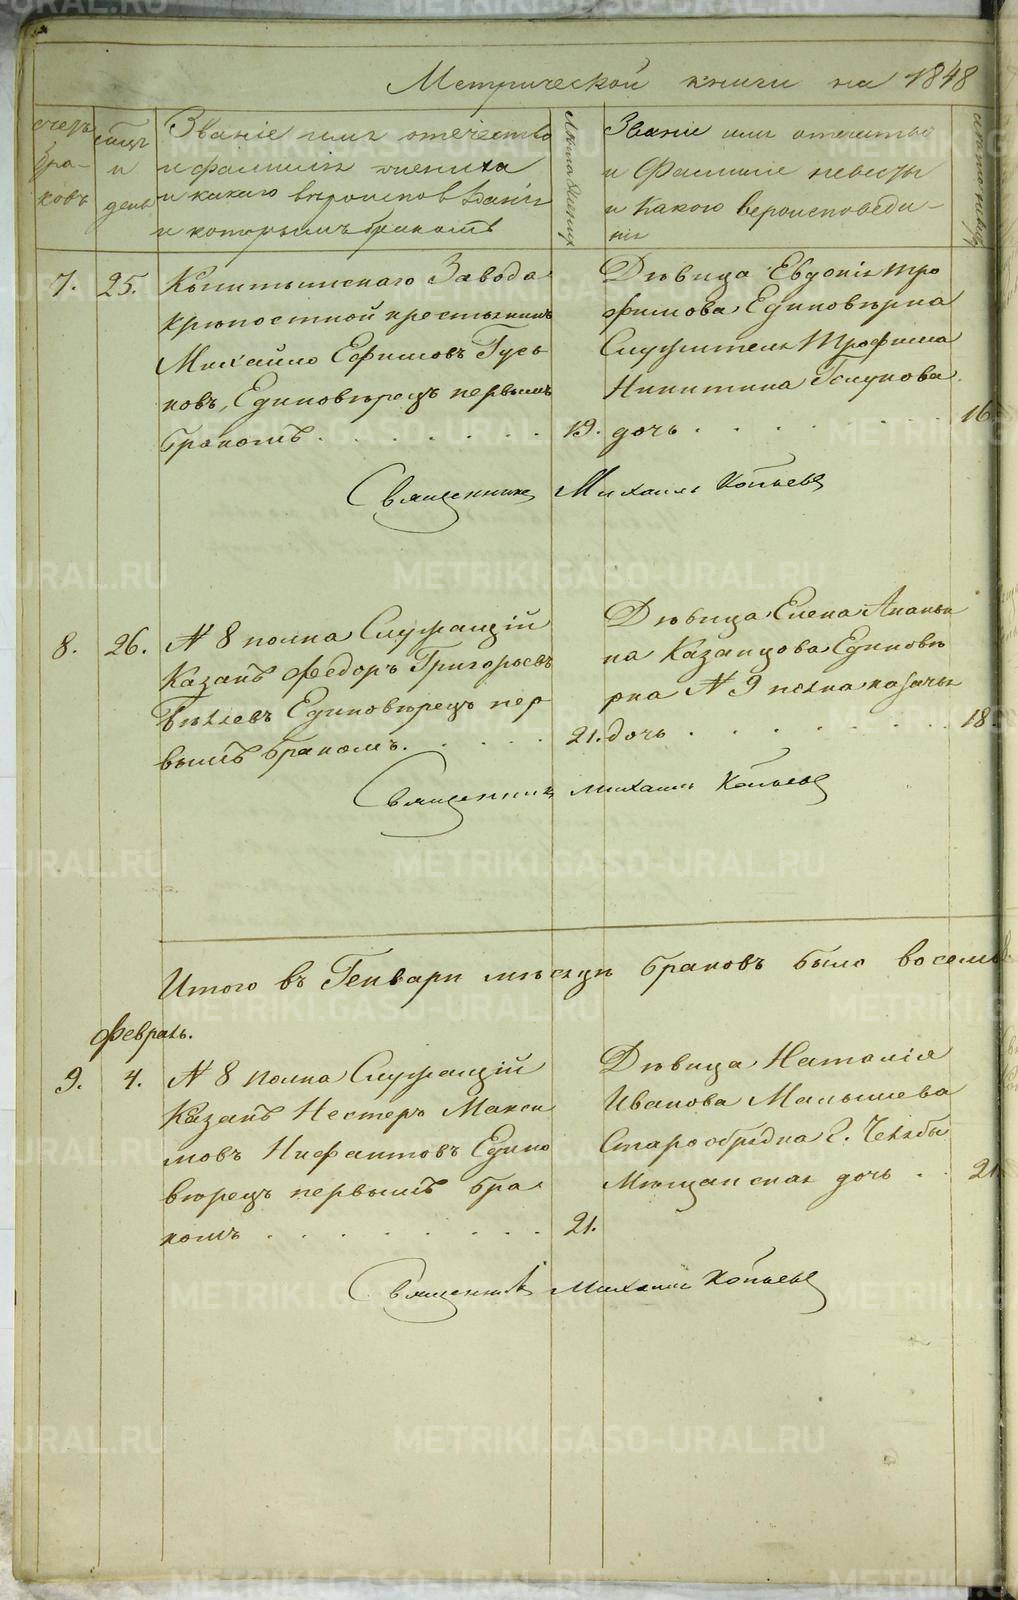 Метрической книги на 1848
счетъ браковъ
мцъ и день
Званіе имя отечество
и фамилія жениха
и какаго вероисповѣданія
и которымъ бракомъ
Лѣта жениха
Званіе имя отечество
и Фамиліе невесты
и Какого вероисповеда-
нія
7. 25. Кыштымскаго Завода
крѣпостной крестьянинъ
Михайло Ефимовъ Гусь
ковъ, Единовѣрецъ первымъ
бракомъ. 19.
Дѣвица Евдокія Тро
фимова Единовѣрка
Служителя Трофима
Никитина Голунова.
дочь 16
Священникъ Михаилъ Копьевъ
8. 26. N 8 полка Служащій
Казакъ Федоръ Григорьевъ
Бѣляевъ Единовѣрецъ пер
вымъ бракомъ. 21.
Дѣвица Елена Анань
на Казанцова Единовѣ
рка N 9 полка казачья
дочь 18.
Священникъ Михаилъ Копьевъ
Итого въ Генваре мѣсяце браковъ было восемь
Февраль.
9. 4. N 8 полка Служащій
Казакъ Нестеръ Макси
мовъ Нифантовъ Едино
вѣрецъ первымъ бра-
комъ 21.
Дѣвица Наталія
Иванова Малышева
Старообрядка г. Челябы
Мѣщанская дочь 21
Священникъ Михаилъ Копьевъ
METRIKI.GASO-URAL.RU